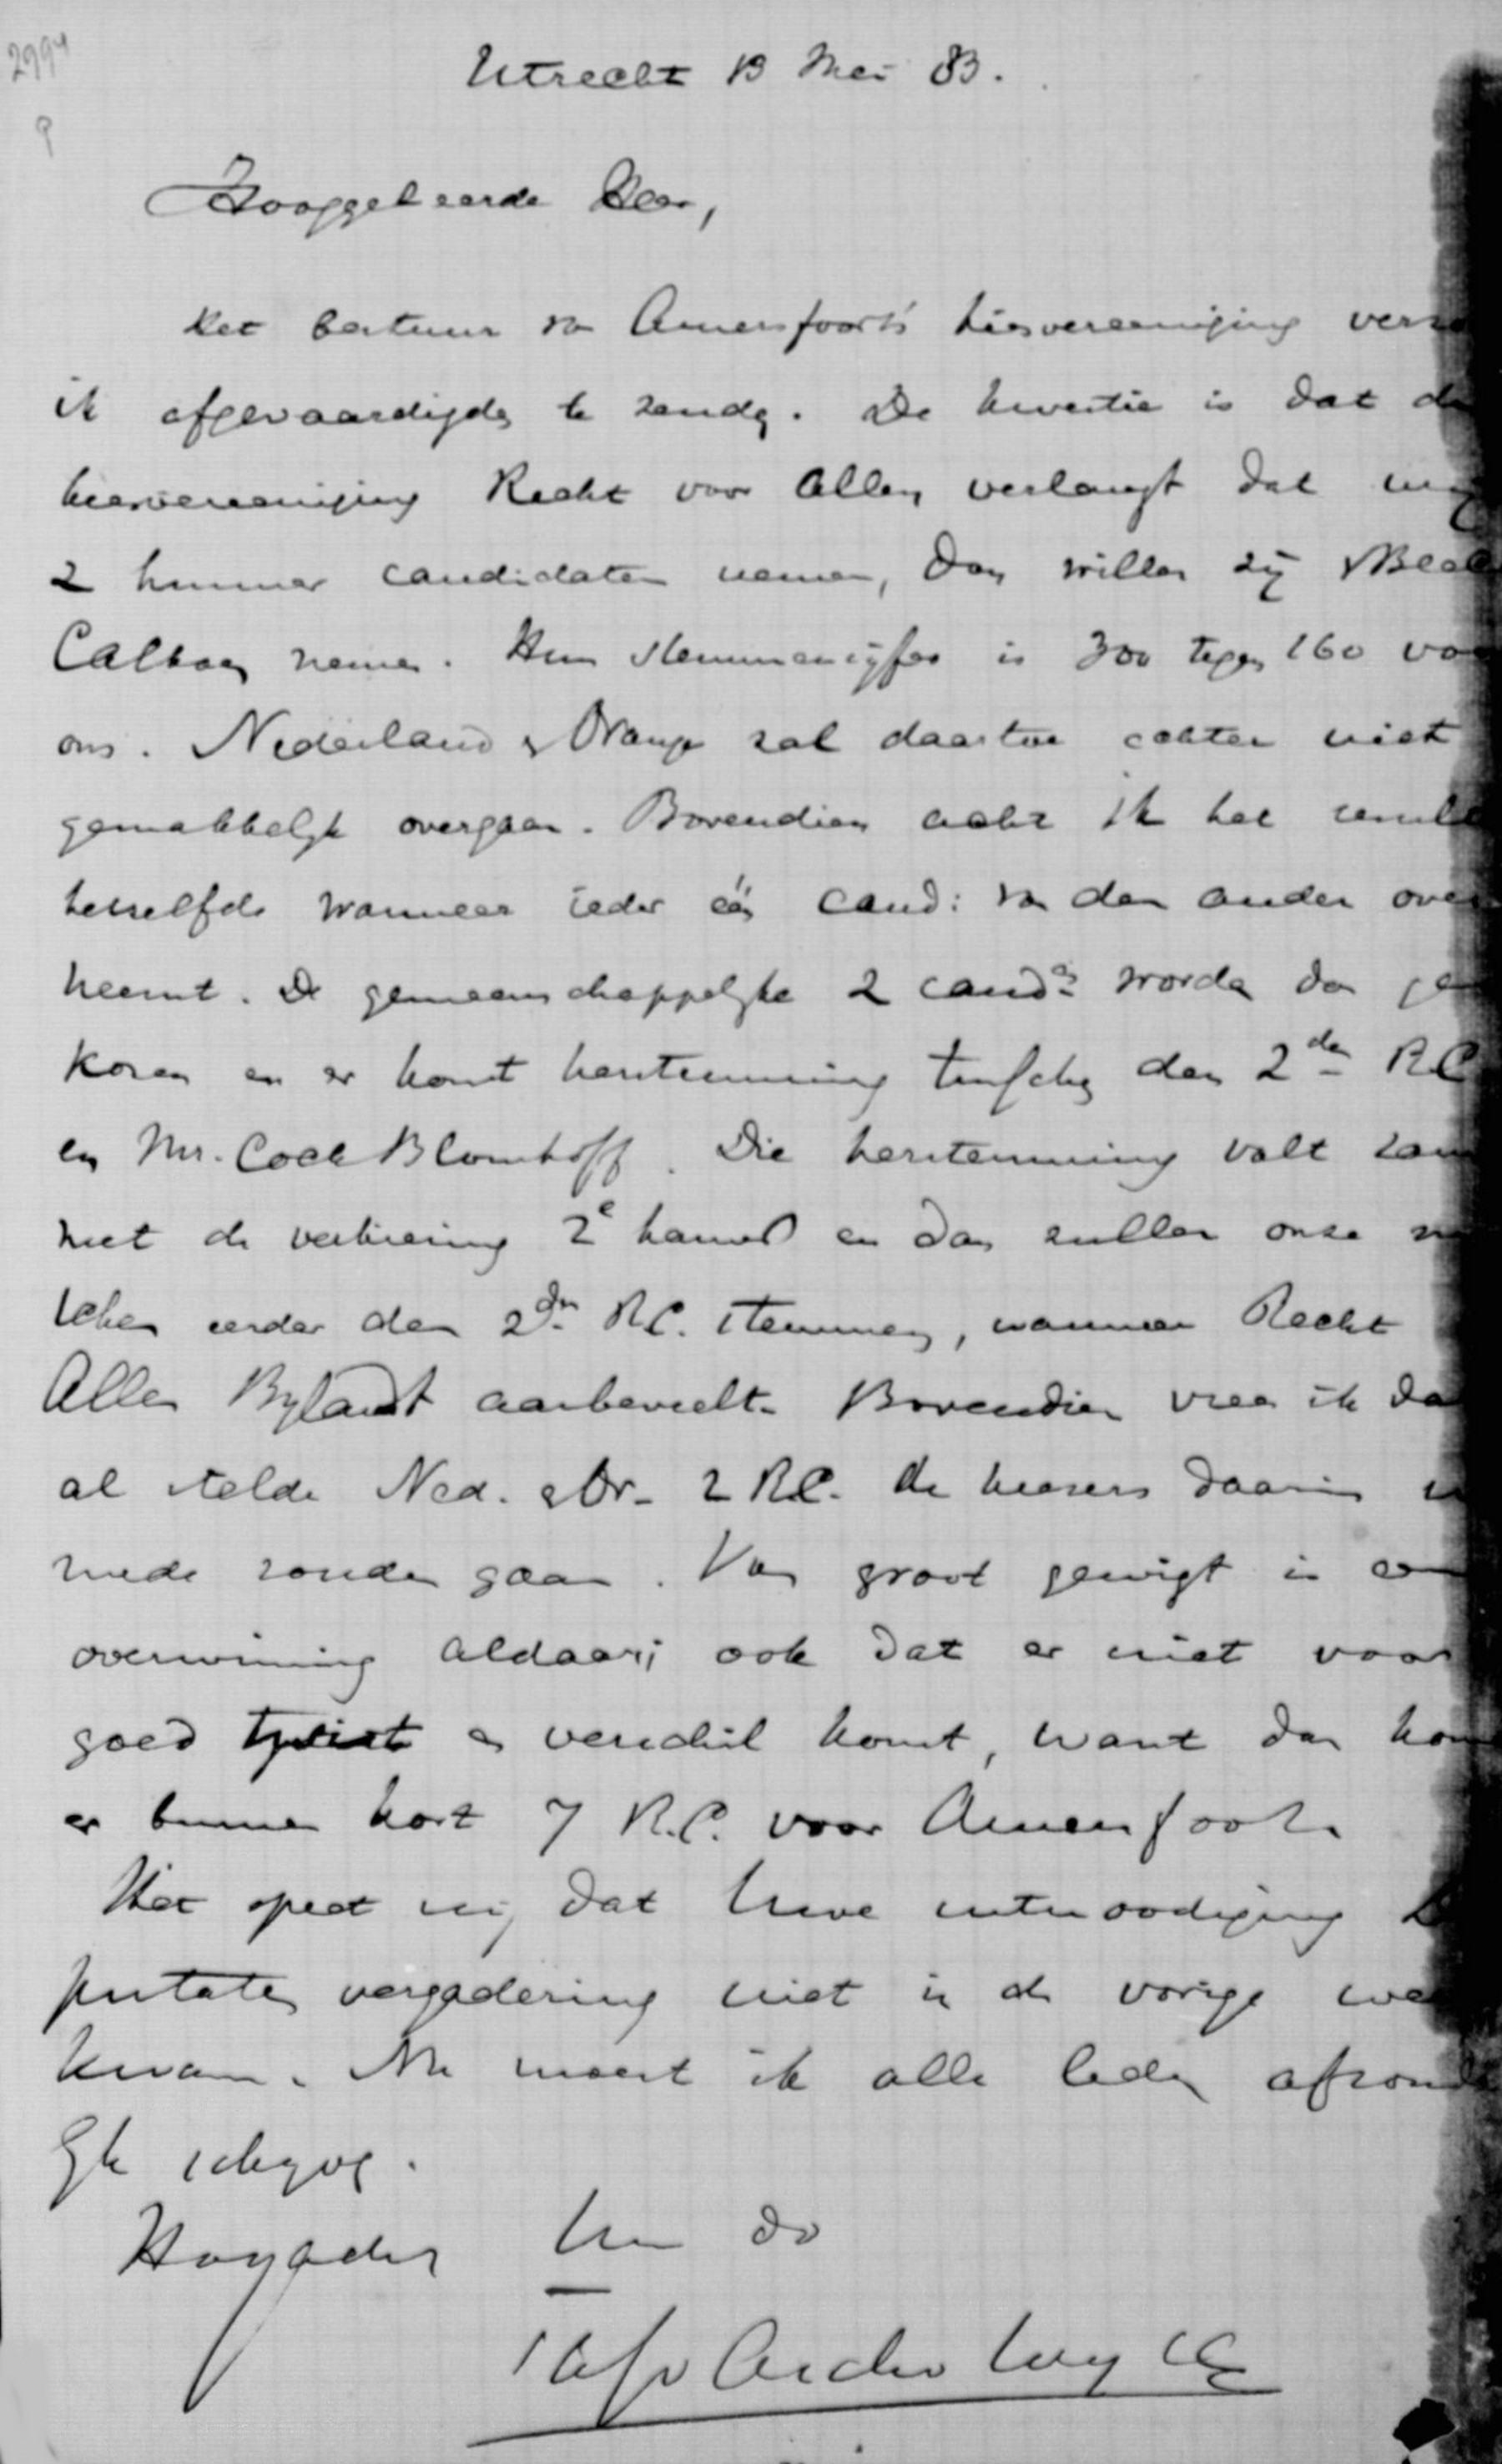 2994
Utrecht 13 Mei 83.
Hooggeleerde Heer,
Het bestuur van Amersfoort's kiesvereeniging
ik afgevaardigden te zenden. De kwestie is dat de
kiesvereeniging Recht voor Allen verlangt dat wij
2 hunner candidaten nemen, dan willen zij
nemen. Hun stemmencijfer is 300 tegen 160 voor
ons. Nederland & Oranje zal daartoe echter niet
gemakkelijk overgaan. Bovendien acht ik het
hetzelfde wanneer ieder één cand: van den ander over
neemt. De gemeenschappelijke 2 cand.n worden dan ge
kozen en er komt herstemming tusschen den 2den R.C.
en Mr. Cock Blomhoff. Die herstemming valt
met de verkiezing 2e kamer en dan zullen onze
eerder den 2den R.C. stemmen, wanneer Recht
Allen Bylandt aanbeveelt. Bovendien vrees ik dat
al stelde Ned. & Or. 2 R.C. de kiezers daarin
mede zouden gaan. Van groot gewigt is
overwinning aldaar; ook dat er niet voor
goed twist en verschil komt, want dan
er binnen kort 7 R.C. voor Amersfoort.
Het speet mij dat Uwe uitnoodiging
putaten vergadering niet in de vorige
kwam. Nu moest ik alle leden afzonder
lijk schrijven.
Hoogachtend
Uw dv